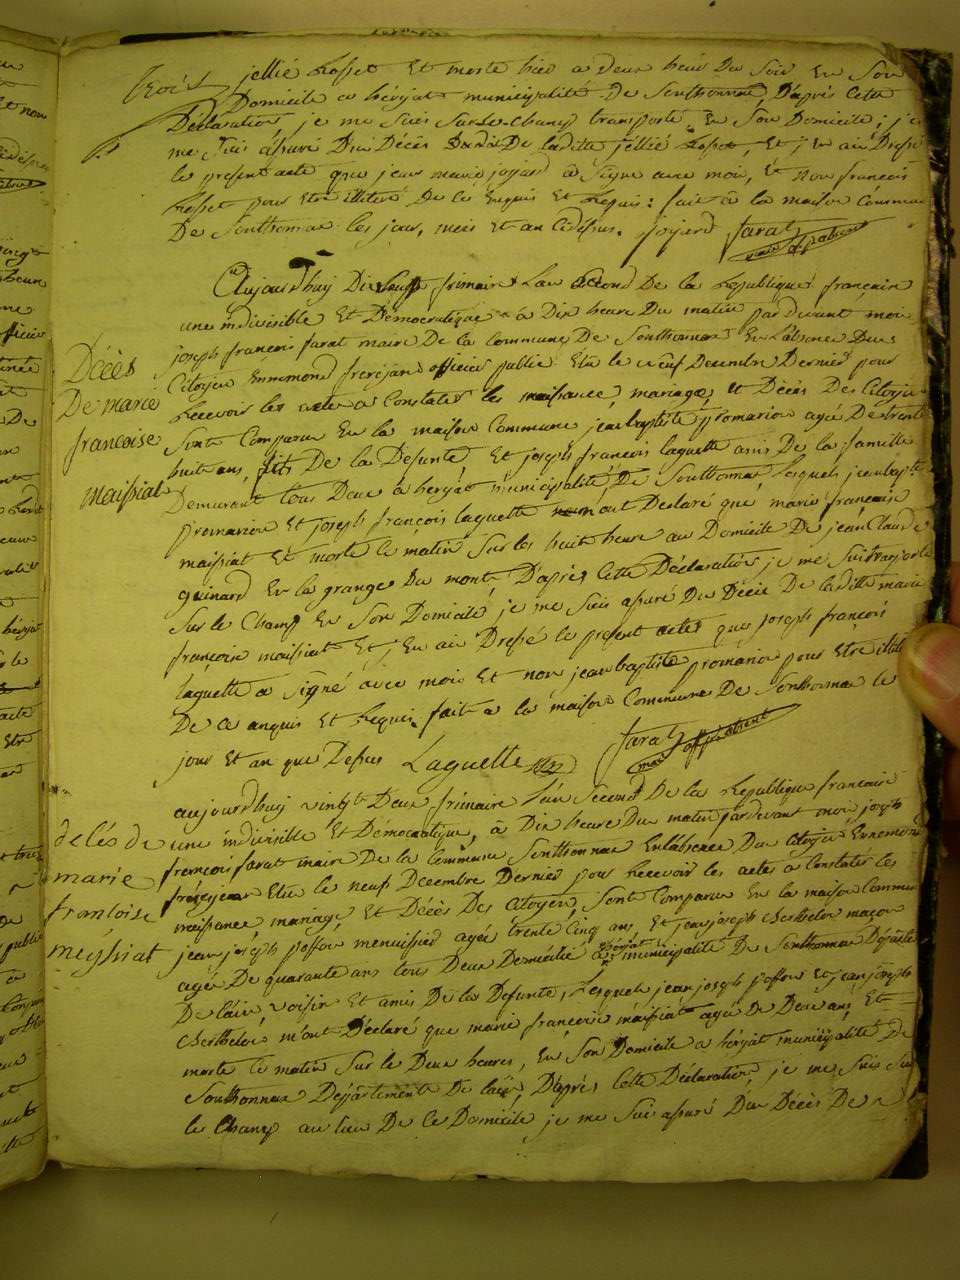 trois jellié Rosset Et morte hier a deux heur Du Soir En Son
Domicile a héryat municipalité De Sonthonnax, D'après Cette
Déclaration je me Suis Sur Le Champ transporté, En Son Domicile, je
me Suis assuré Du Décès De laditte jellié Rosset, Et j'En ai Dressé
le present acte que jean marie joyard a Signé avec moi, Et non françois
Rosset pour Etre illitéré De Ce Enquis Et Requis : fait a la maison Commune
De Sonthonnax les jour, mois et an Cidessus. joyard farat
maire off p absent
Aujourd'huy Dix frimaire L'an Second De la Republique française
une indivisible Et Démocratique a Dix heure Du matin par Devant moi
joseph francois farat maire De la Commune De Sonthonnax En L'absence Du
Citoyen Ennemond frerejan officier public Elu le neuf Decembre Dernier pour
Recevoir les actes a Constater les naissance, mariage, et Décès Des Citoyen
Sont Comparu En la maison Commune jean baptiste promarion agé De trente
huit ans, De la Defunte, Et joseph francois laguette amis De la famille
Demeurant tous Deux a héryat municipalité De Sonthonnax, Lesquels jean bapte
promarion Et joseph françois laguette m'ont Declaré que marie francoise
maissiat Et morte Ce matin Sur les huit heure au Domicile De jean Claude
guinard En la grange Du mont, D'après Cette Déclaration je me Suis transporté
Sur le Champ En Son Domicile je me Suis assuré Du Décès De laditte marie
françoise maissiat Et j'En ai Dressé le present acte que joseph francois
laguette a Signé avec moi Et non jean baptiste promarion pour Etre illité
De Ce anquis Et Requis. fait a la maison Commune De Sonthonnax le
jour Et an que Dessus Laguette farat
maire off p absent
Décès
De marie
francoise
maissiat
aujourd'huy vingt Deux frimaire L'an Second De la Republique française
une indivisible Et Démocratique, a Dix heure Du matin par devant moi joseph
francois farat maire De la Commune Sonthonnax En labsence Du Citoyen Ennemond
frèrejean Elu le neuf Decembre Dernier pour Recevoir les actes a Constater les
naissance, mariage, Et Décès Des Citoyen, Sont Comparu En la maison Commune
jean joseph poffon menuisier agé trente Cinq ans, Et jean joseph berthelon maçon
agé De quarante ans tous Deux Domicilié a héryat municipalité De Sonthonnax Départe
De l'ain, voisin Et amis De la Defunte, Lesquels jean joseph poffon Et jean joseph
Berthelon m'ont Déclaré que marie francoise maissiat agée De Deux ans, Et
morte Ce matin Sur le Deux heures, En Son Domicile a héryat municipalité De
Sonthonnax Département De l'ain, D'après Cette Déclaration, je me Suis Sur
le Champ au lieu De Ce Domicile je me Suis assuré Du Décès De
delés de
marie
francoise
meyssiat